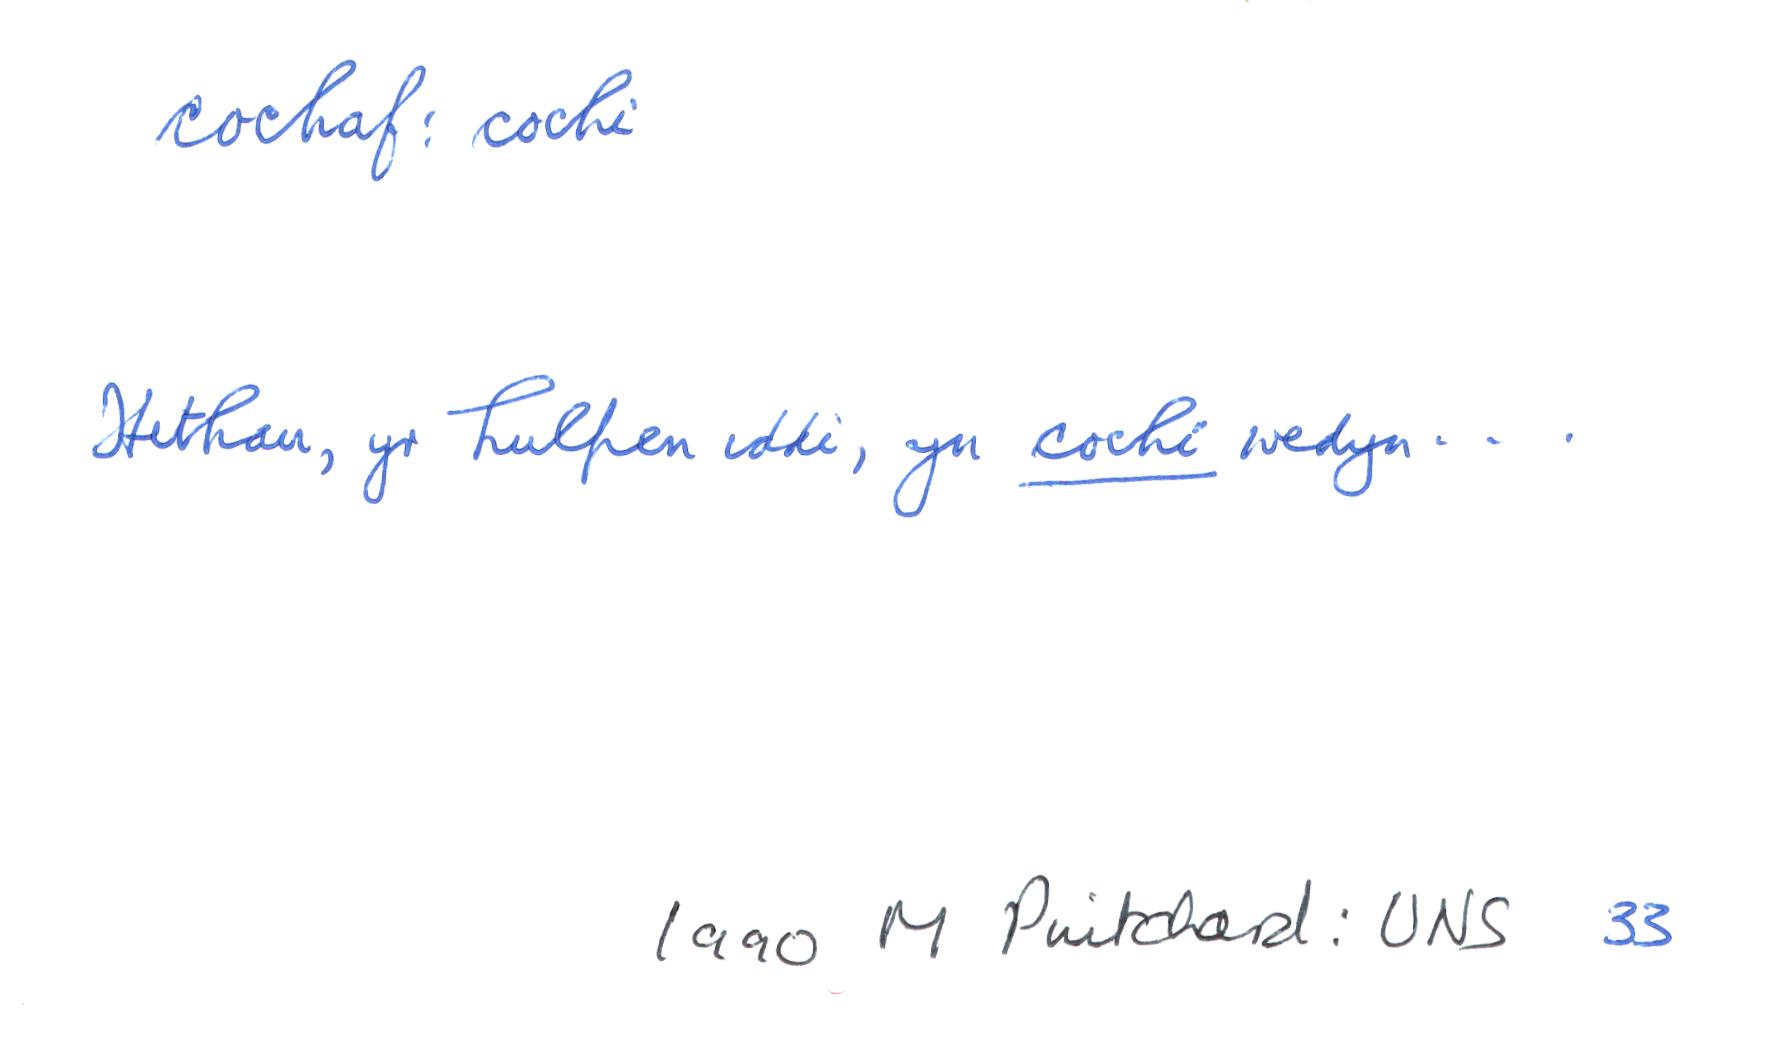 cochaf: cochi
Hithau, yr hulpen iddi, yn cochi wedyn....
1990 M Pritchard: UNS 33